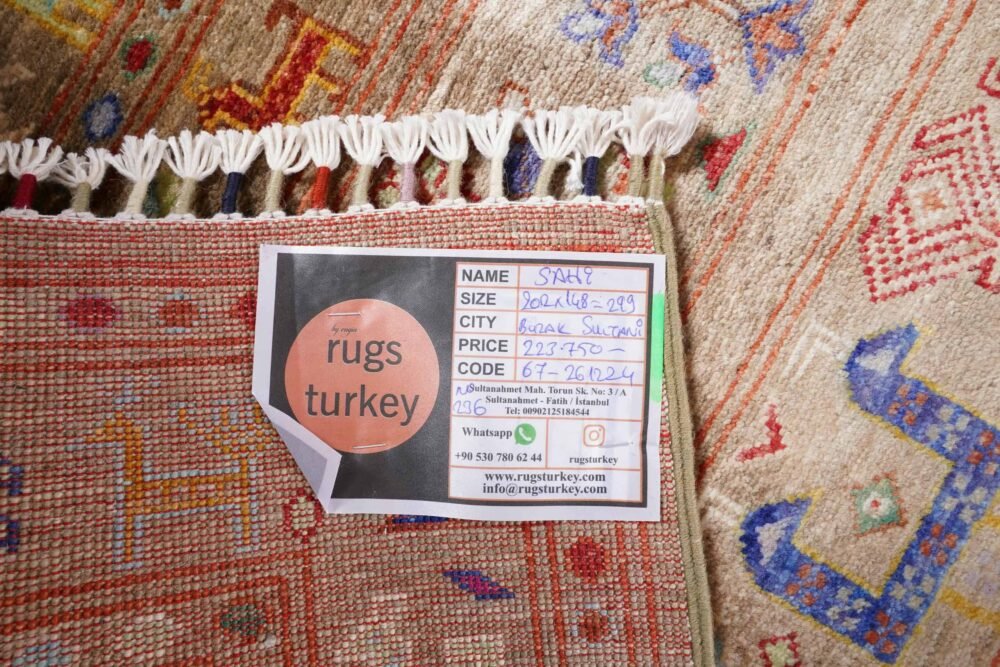 by engin
rugs
turkey
NAME SAHİ
SIZE 202x148=299
CITY BUZAK SULTANI
PRICE 223.750-
CODE 67-261224
No
296
Sultanahmet Mah. Torun Sk. No: 3 / A
Sultanahmet - Fatih / İstanbul
Tel: 00902125184544
Whatsapp
+90 530 780 62 44
rugsturkey
www.rugsturkey.com
info@rugsturkey.com